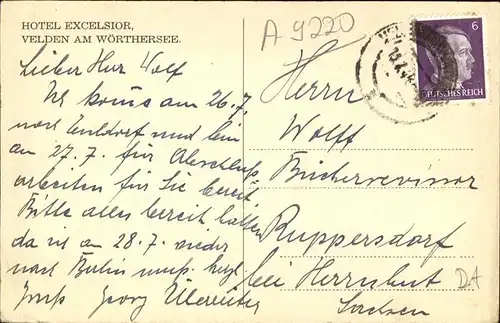 HOTEL EXCELSIOR,
VELDEN AM WÖRTHERSEE.
A 9220
6
DEUTSCHES REICH
Lieber Herr Wolf
Ich komme am 26.7.
nach und bin
am 27.7. für Abschluß-
arbeiten für Sie bereit
Bitte alles bereit halten
da ich am 28.7. wieder
nach Berlin muß. herzl.
Gruß Georg
Herrn
Wolff
Bücherrevisor
Ruppersdorf
bei Herrnhut
Sachsen
DA